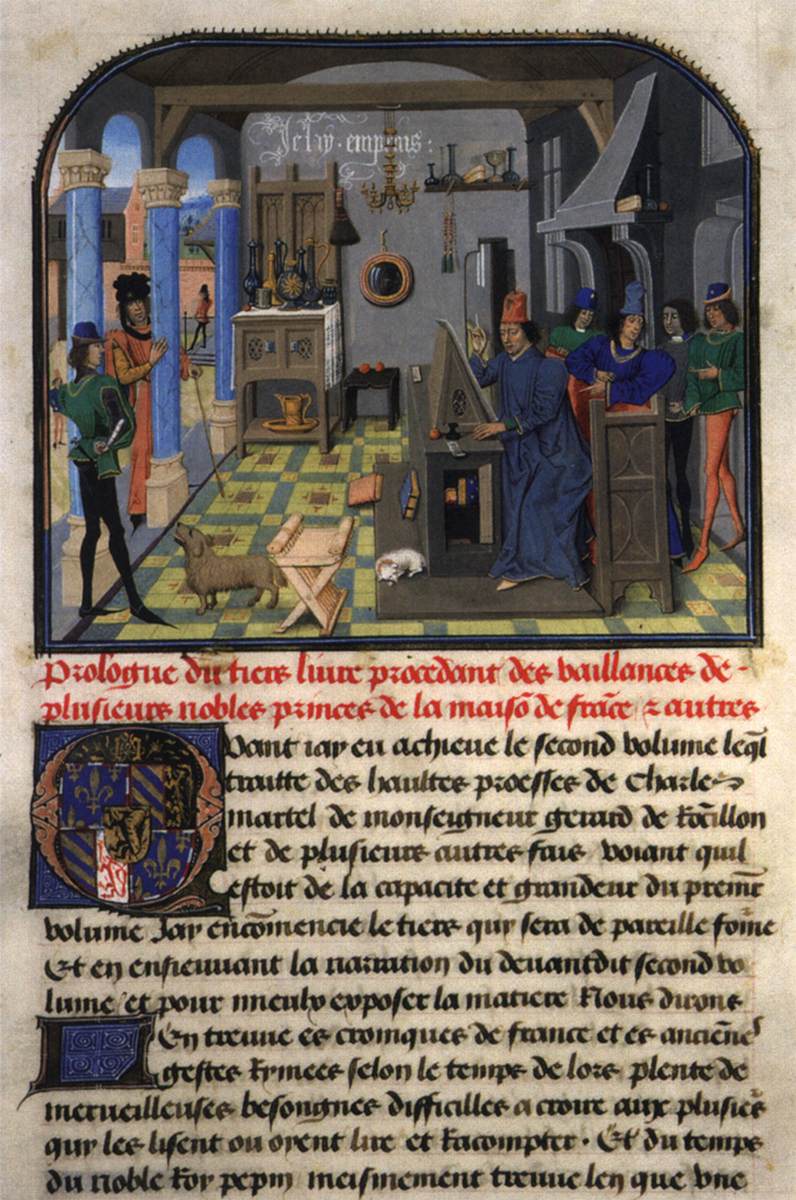 Je lay empris :
Prologue du tiers liure procedant des vaillances de -
plusieurs nobles princes de la maisō de frāce & autres
Quant iay eu achieue le second volume leql
traitte des haultes proesses de Charles
martel de monseigneur gerard de Rōcillon
et de plusieurs autres fais voiant quil
estoit de la capacite et grandeur du premr
volume Jay encōmencie le tiers qui sera de pareille forme
Et en ensieuuant la narration du deuantdit second vo
lume et pour mieulx exposer la matiere Nous dirons
En treuue es croniques de france et es ancienes
gestes Rimees selon le temps de lors plente de
merueilleuses besongnes difficilles a croire aux plusieurs
qui les lisent ou oyent lire et Racompter . Et du temps
du noble Roy pepin meismement treuue len que vne